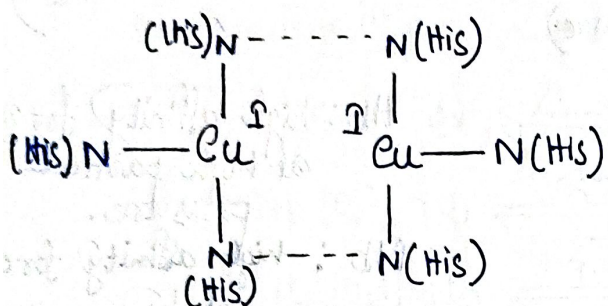 (His)N - - - - - N(His)
I I
(His) N — Cu Cu — N(His)
N - - - - N(His)
(His)